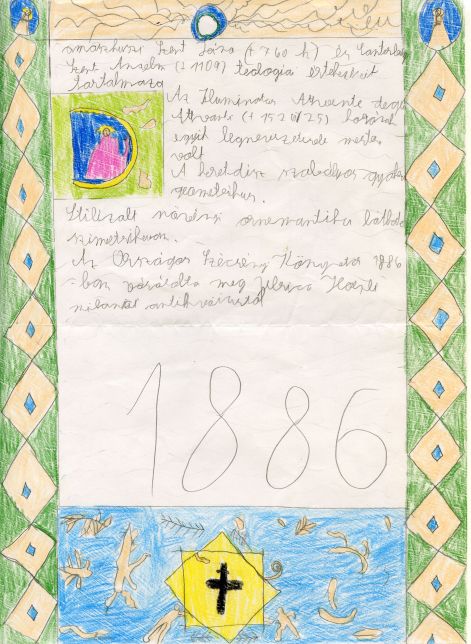 szent János († 760 k) és Canterbury
szent Anselm († 1109) teológia értekezéseit
tartalmazza
Az Iluminátor Attavante degli
Attavanti († 1520/25) korának
egyik legnevezetesebb mestere
volt
A keretdísz szabályos gyakran
geometrikus.
Stilizált növényi ornamentika látható
szimetrikusan.
Az Országos Szécsényi Könyvtár 1886
-ban vásárolta meg Ulrico Hoepli
milánói antikváriustól
1886